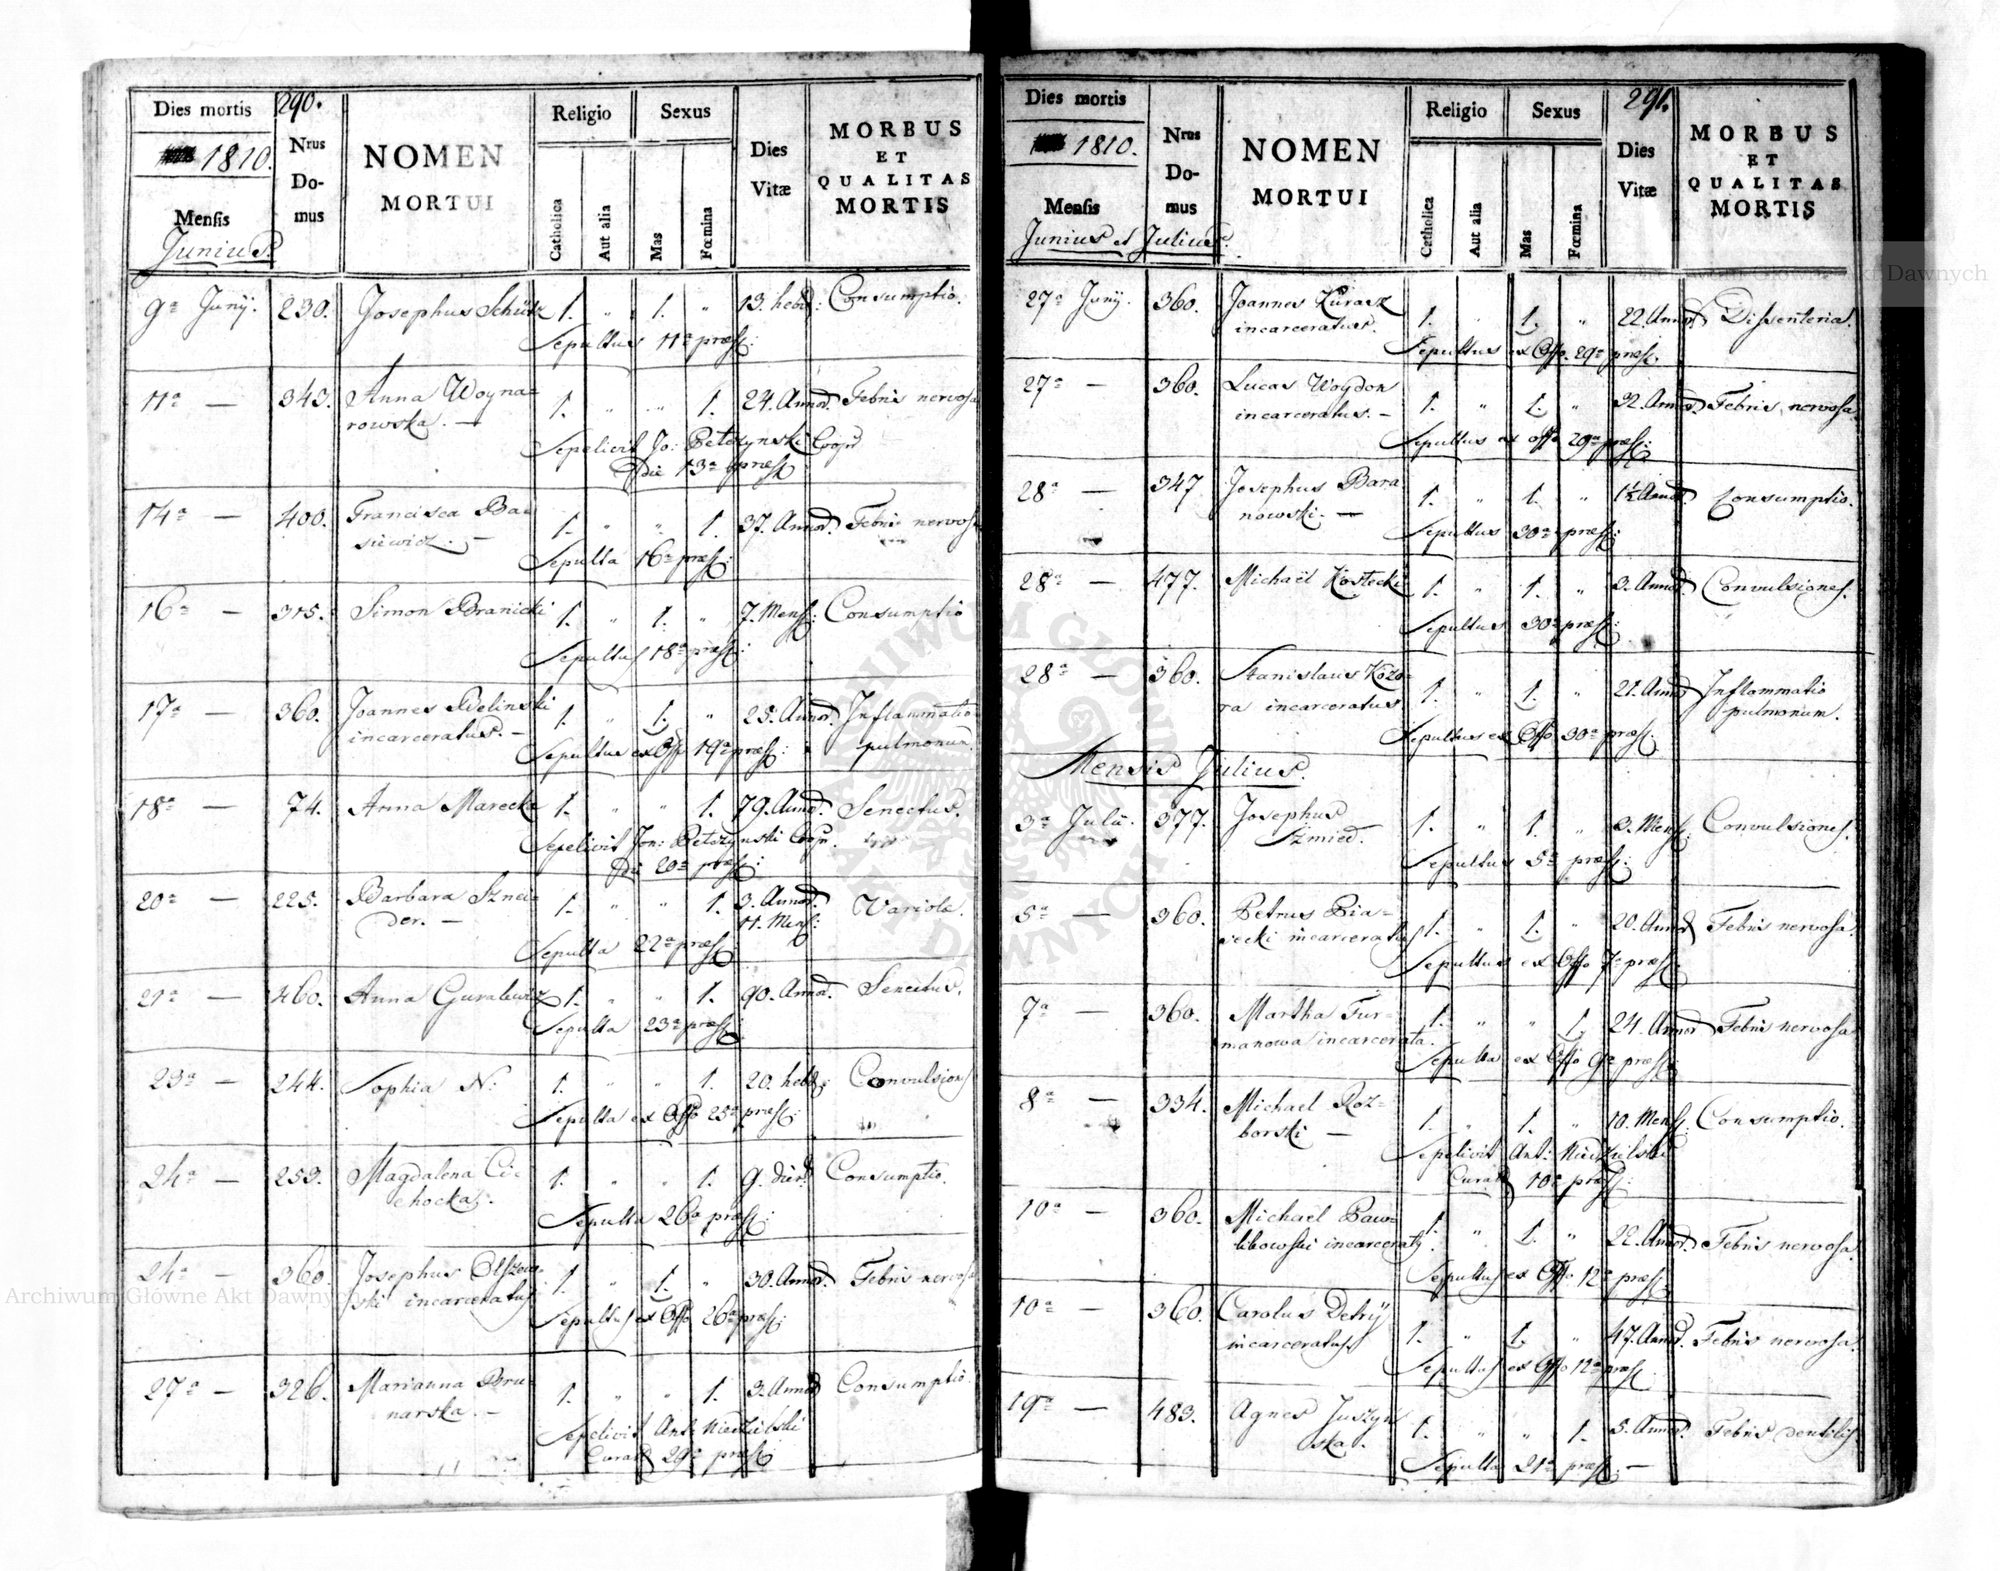 Dies mortis
290.
1810.
Mensis
Junius.
Nrus
Do-
mus
NOMEN
MORTUI
Religio
Sexus
Catholica
Aut alia
Mas
Fœmina
Dies
Vitæ
MORBUS
ET
QUALITAS
MORTIS
9a Junij. 230. Josephus Schütz 1. " 1. " 13. hebd: Consumptio.
Sepultus 11a præs:
11a — 343. Anna Woyna=
rowska. — 1. " " 1. 24. Annor. Febris nervosa
Sepelivit Jo: Betczynski Coopr
Die 13a præs:
14a — 400. Francisca Ba=
siewicz. — 1. " " 1. 37. Annor. Febris nervosa
Sepulta 16a præs:
16a — 315. Simon Branicki 1. " 1. " 7. Mens: Consumptio
Sepultus 18a præs:
17a — 360. Joannes Belinski
incarceratus. — 1. " 1. " 25. Annor. Inflammatio
pulmonum.
Sepultus ex Offo 19a præs:
18a — 74. Anna Marecka 1. " " 1. 79. Annor. Senectus.
Sepelivit Jon: Betczynski Coopr.
Die 20a præs:
20a — 225. Barbara Sznei=
der. — 1. " " 1. 3. Annor.
11. Mens: Variola.
Sepulta 22a præs:
21a — 460. Anna Guralewicz 1. " " 1. 90. Annor. Senectus.
Sepulta 23a præs:
23a — 244. Sophia N: 1. " " 1. 20. hebd: Convulsiones
Sepulta ex Offo 25a præs:
24a — 253. Magdalena Ci=
chocka. 1. " " 1. 9. dier. Consumptio.
Sepulta 26a præs:
24a — 360. Josephus Olszew=
ski incarceratus 1. " 1. " 30. Annor. Febris nervosa
Sepultus ex Offo 26a præs:
27a — 326. Marianna Bru=
narska. — 1. " " 1. 3. Annor. Consumptio
Sepelivit Ant: Niedzielski
Curat 29a præs:
Dies mortis
1810.
Mensis
Junius et Julius.
Nrus
Do-
mus
NOMEN
MORTUI
Religio
Sexus
Catholica
Aut alia
Mas
Fœmina
291.
Dies
Vitæ
MORBUS
ET
QUALITAS
MORTIS
27a Junij. 360. Joannes Kurasz
incarceratus. 1. " 1. " 22. Annor. Dissenteria.
Sepultus ex Offo. 29a præs.
27a — 360. Lucas Woydon
incarceratus. — 1. " 1. " 32. Annor. Febris nervosa.
Sepultus ex offo 29a præs:
28a — 347 Josephus Bara
nowski. — 1. " 1. " 1½ Annor. Consumptio.
Sepultus 30a præs:
28a — 477. Michaël Kostecki 1. " 1. " 3. Annor. Convulsiones.
Sepultus 30a præs:
28a — 360. Stanislaus Kozo=
ra incarceratus 1. " 1. " 21. Annor Inflammatio
pulmonum.
Sepultus ex Offo 30a præs:
Mensis Julius.
3a Julii. 377. Josephus
Szmied. 1. " 1. " 3. Mens: Convulsiones.
Sepultus 5a præs:
5a — 360. Petrus Bia=
secki incarceratus 1. " 1. " 20. Annor Febris nervosa.
Sepultus ex Offo 7a præs:
7a — 360. Martha Fur=
manowa incarcerata. 1. " " 1. 24. Annor Febris nervosa
Sepulta ex Offo 9a præs:
8a — 334. Michael Roz=
borski — 1. " 1. " 10. Mens: Consumptio.
Sepelivit Ant: Niedzielski
Curat 10a præs:
10a — 360. Michaël Paw=
likowski incarceraty 1. " 1. " 22. Annor. Febris nervosa.
Sepultus ex Offo 12a præs:
10a — 360. Carolus Detrÿ
incarceratus 1. " 1. " 47. Annor. Febris nervosa.
Sepultus ex Offo 12a præs:
19a — 483. Agnes Juszyń
ska. 1. " " 1. 5. Annor. Febris dentilis.
Sepulta 21a præs: —
Archiwum Główne Akt Dawnych
Archiwum Główne Akt Dawnych
ARCHIWUM GŁÓWNE AKT DAWNYCH